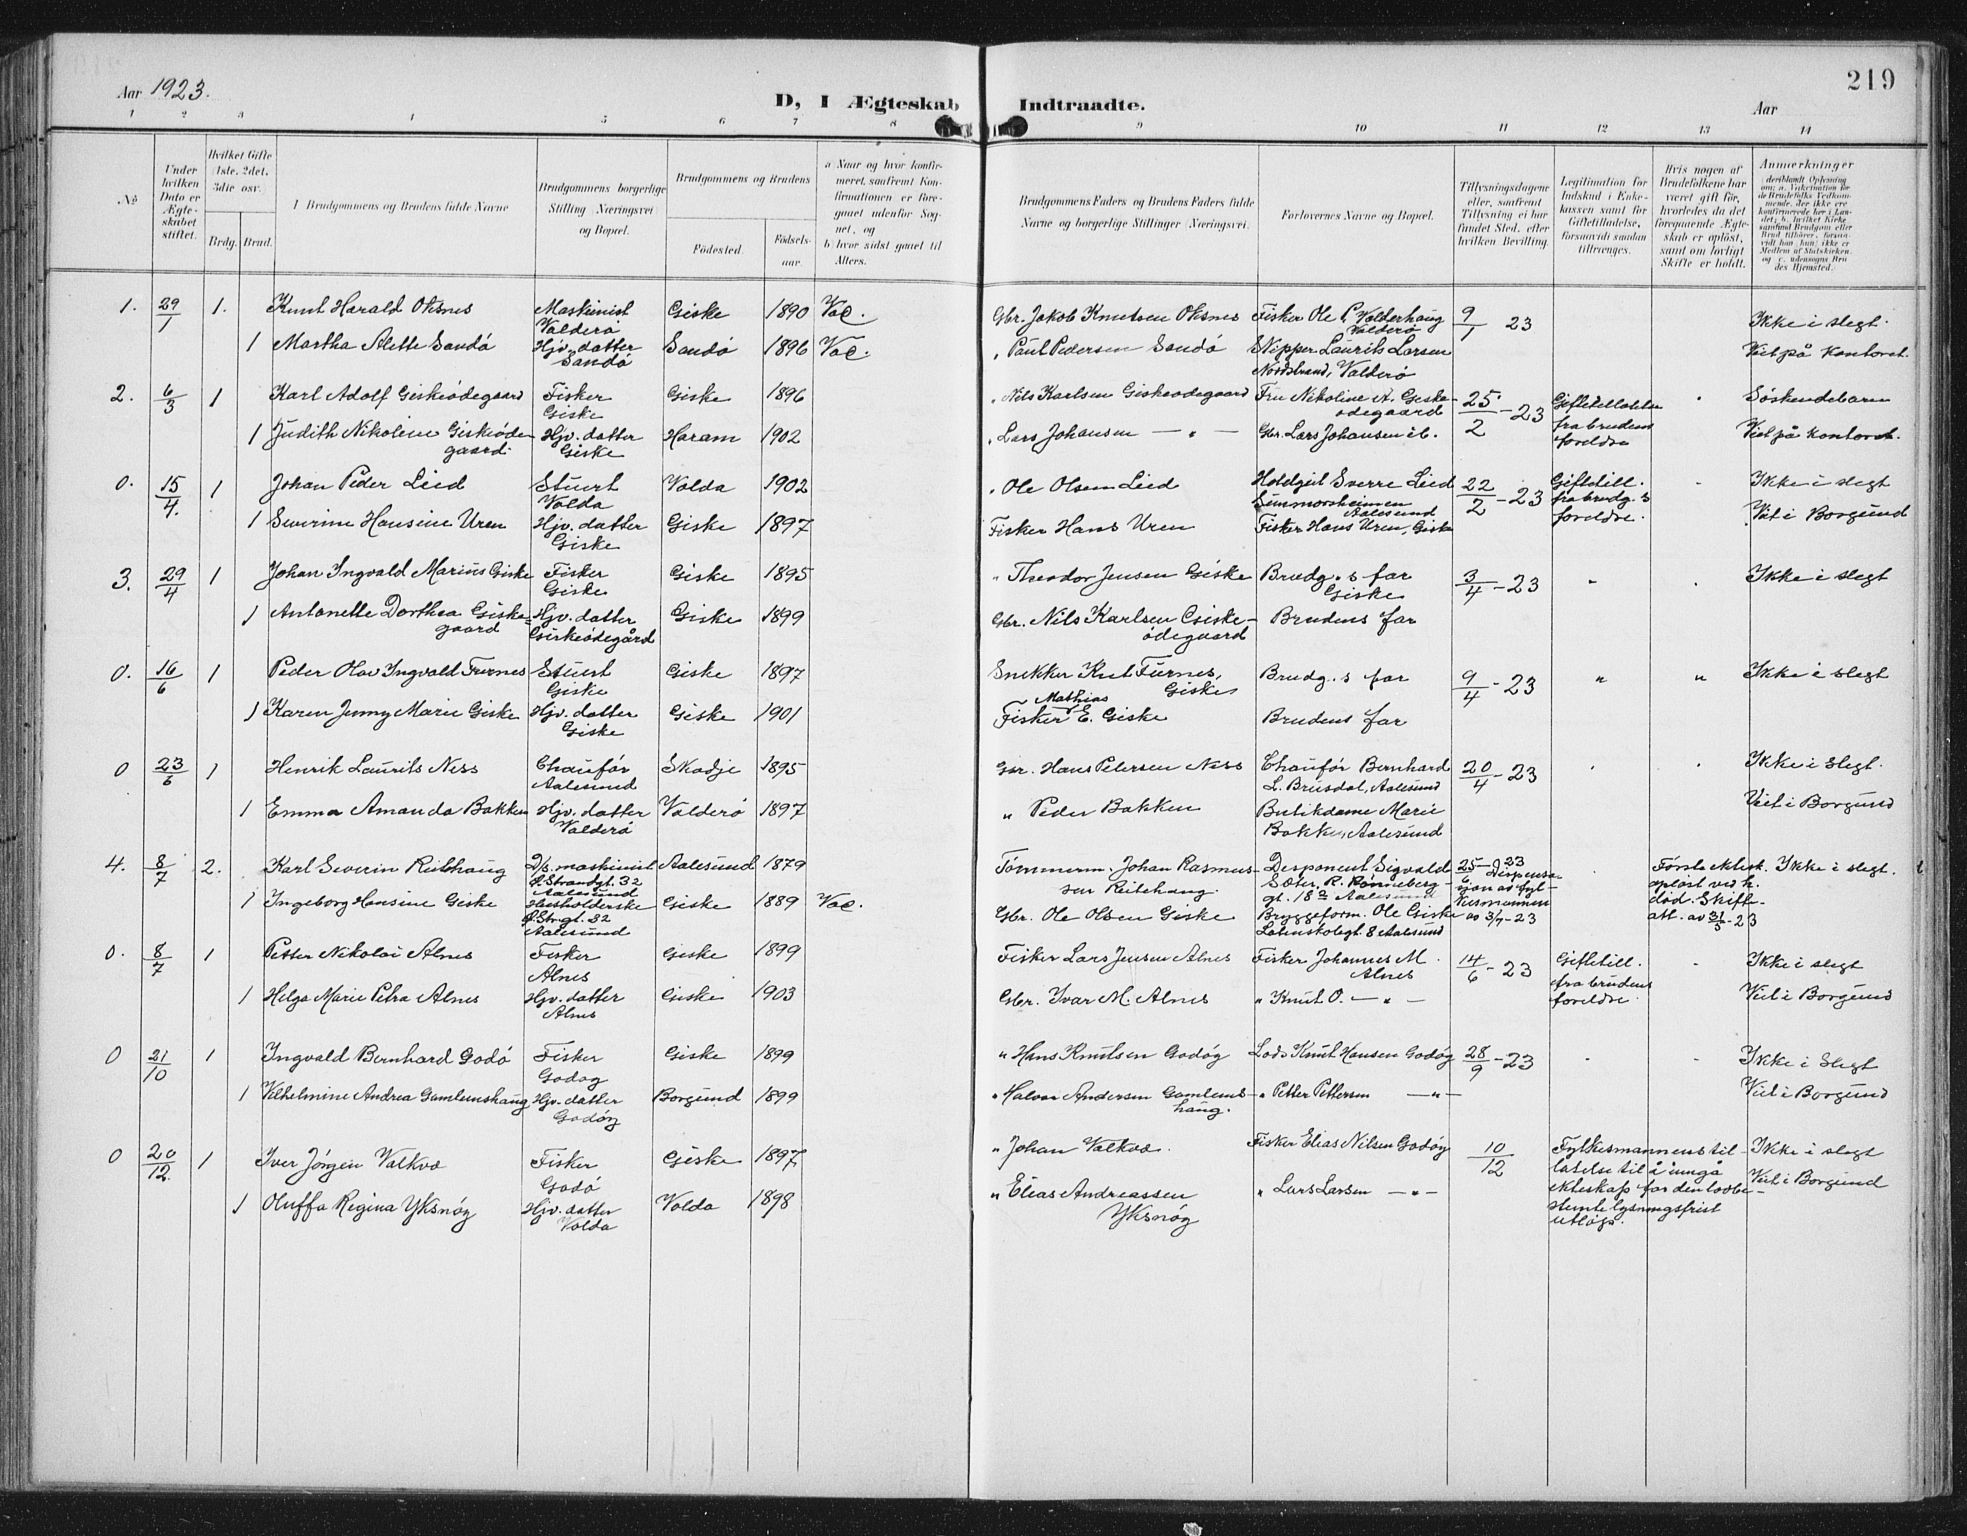 Aar 1923.
D, I Ægteskab Indtraadte.
Aar
219
1 2 3 4 5 6 7 8 9 10 11 12 13 14
No
Under hvilken Dato er Ægteskabet stiftet.
Hvilket Gifte 1ste, 2det, 3die osv.
Brdg. Brud.
Brudgommens og Brudens fulde Navne
Brudgommens borgerlige Stilling Næringsvei og Bopæl.
Brudgommens og Brudens
Fødested.
Fødselsaar.
a Naar og hvor konfirmeret, samt om Konfirmationen er foregaaet udenfor Sognet, og b. hvor sidst gaaet til Alters.
Brudgommens Faders og Brudens Faders fulde Navne og borgerlige Stillinger (Næringsvei.
Forlovernes Navne og Bopæl.
Tillysningsdagene eller, saafremt Tillysning ei har fundet Sted, efter hvilken Bevilling.
Legitimation for Indskud i Enkekassen samt for Giftetilladelse, forsaavidt saadan tiltrænges.
Hvis nogen af Brudefolkene har været gift før, hvorledes da det foregaaende Ægteskab er opløst, samt om lovligt Skifte er holdt.
Anmerkninger
1. 29/1 1. Knut Harald Oksnes Maskinist Valderø Giske 1890 Vac. Gbr. Jakob Knutsen Oksnes Fisker Ole P. Valderhaug Valderø 9/1 23 Ikke i slegt.
1 Martha Alette Sandø Hjv. datter Sandø Sandø 1896 Vac. " Paul Pedersen Sandø Skipper Laurits Larsen Nordstrand, Valderø Viet på kontoret.
2. 6/3 1 Karl Adolf Giskeødegaard Fisker Giske Giske 1896 " Nils Karlsen Giskeødegaard Fru Nikoline A. Giskeødegaard 25/2 - 23 Giftetilladelse fra brudens foreldre " Søskendebarn
1 Judith Nikoline Giskeødegaard Hjv. datter Giske Haram 1902 " Lars Johansen — " — Gbr. Lars Johansen ib. Viet på kontoret.
0. 15/4. 1 Johan Peder Lied Stuert Volda Volda 1902 " Ole Olsen Lied Hotelgut Sverre Lied Sunmørsheimen Aalesund 22/2 - 23 Giftetill. fra brudg.s foreldre. Ikke i slegt
1 Severine Hansine Uren Hjv. datter Giske Giske 1897 Fisker Hans Uren Fisker Hans Uren, Giske Viet i Borgund
3. 29/4 1 Johan Ingvald Marius Giske Fisker Giske Giske 1895 " Theodor Jensen Giske Brudg.s far Giske 3/4 - 23 " Ikke i slegt
1 Antonette Dorthea Giskegaard Hjv. datter Giskeødegård Giske 1899 Gbr. Nils Karlsen Giskeødegaard Brudens far
0. 16/6 1 Peder Olav Ingvald Furnes Stuert Giske Giske 1897 Snekker Knut Furnes, Giske Brudg.s far 9/4 - 23 " " Ikke i slegt
1 Karen Jenny Marie Giske Hjv. datter Giske Giske 1901 Fisker Mathias E. Giske Brudens far
0 23/6 1 Henrik Laurits Ness Chaufør Aalesund Skodje 1895 Gbr. Hans Petersen Ness Chaufør Bernhard L. Brusdal, Aalesund 20/4 - 23 Ikke i slegt.
1 Emma Amanda Bakken Hjv. datter Valderø Valderø 1897 " Peder Bakken Butikdame Marie Bakken, Aalesund Viet i Borgund
4. 8/7 2. Karl Severin Reitehaug D/s. maskinist Ø. Strandgt. 32 Aalesund Aalesund 1879 Tømmerm. Johan Rasmussen Reitehaug. Disponent Sigvald Sæter, R. Rønneberggt. 18 a Aalesund 25/6 - 23 Dispensasjon av fylkesmannen av 3/7 - 23 Første ektesk. opløst ved h. død. Skifteatt. av 31/5 - 23 Ikke i slegt.
1 Ingeborg Hansine Giske Husholderske Ø. Str.gt. 32 Aalesund Giske 1889 Vac. Gbr. Ole Olsen Giske Bryggeform. Ole Giske Latinskolegt. 8 Aalesund
0. 8/7 1 Petter Nikolai Alnes Fisker Alnes Giske 1899 Fisker Lars Jensen Alnes Fisker Johannes M. Alnes 14/6 - 23 Giftetill. fra brudens foreldre. Ikke i slegt
1 Helga Marie Petra Alnes Hjv. datter Alnes Giske 1903 Gbr. Ivar M. Alnes " Knut O. — " — Viet i Borgund
0 21/10 1 Ingvald Bernhard Godø Fisker Godøy Giske 1899 " Hans Knutsen Godøy Lods Knut Hansen Godøy 28/9 - 23 Ikke i slegt
1 Vilhelmine Andrea Gamlemshaug Hjv. datter Godøy Borgund 1899 " Halvar Andersen Gamlemshaug. " Petter Pettersen — " — Viet i Borgund
0 20/12. 1 Iver Jørgen Valkvæ Fisker Godø Giske 1897 " Johan Valkvæ. Fisker Elias Nilsen Godøy 10/12 Fylkesmannens tillatelse til å inngå ekteskap før den lovbestemte lysningsfrist utløp. Ikke i slegt
1 Oluffa Regina Yksnøy Hjv. datter Volda Volda 1898 " Elias Andreassen Yksnøy " Lars Larsen — " — Viet i Borgund